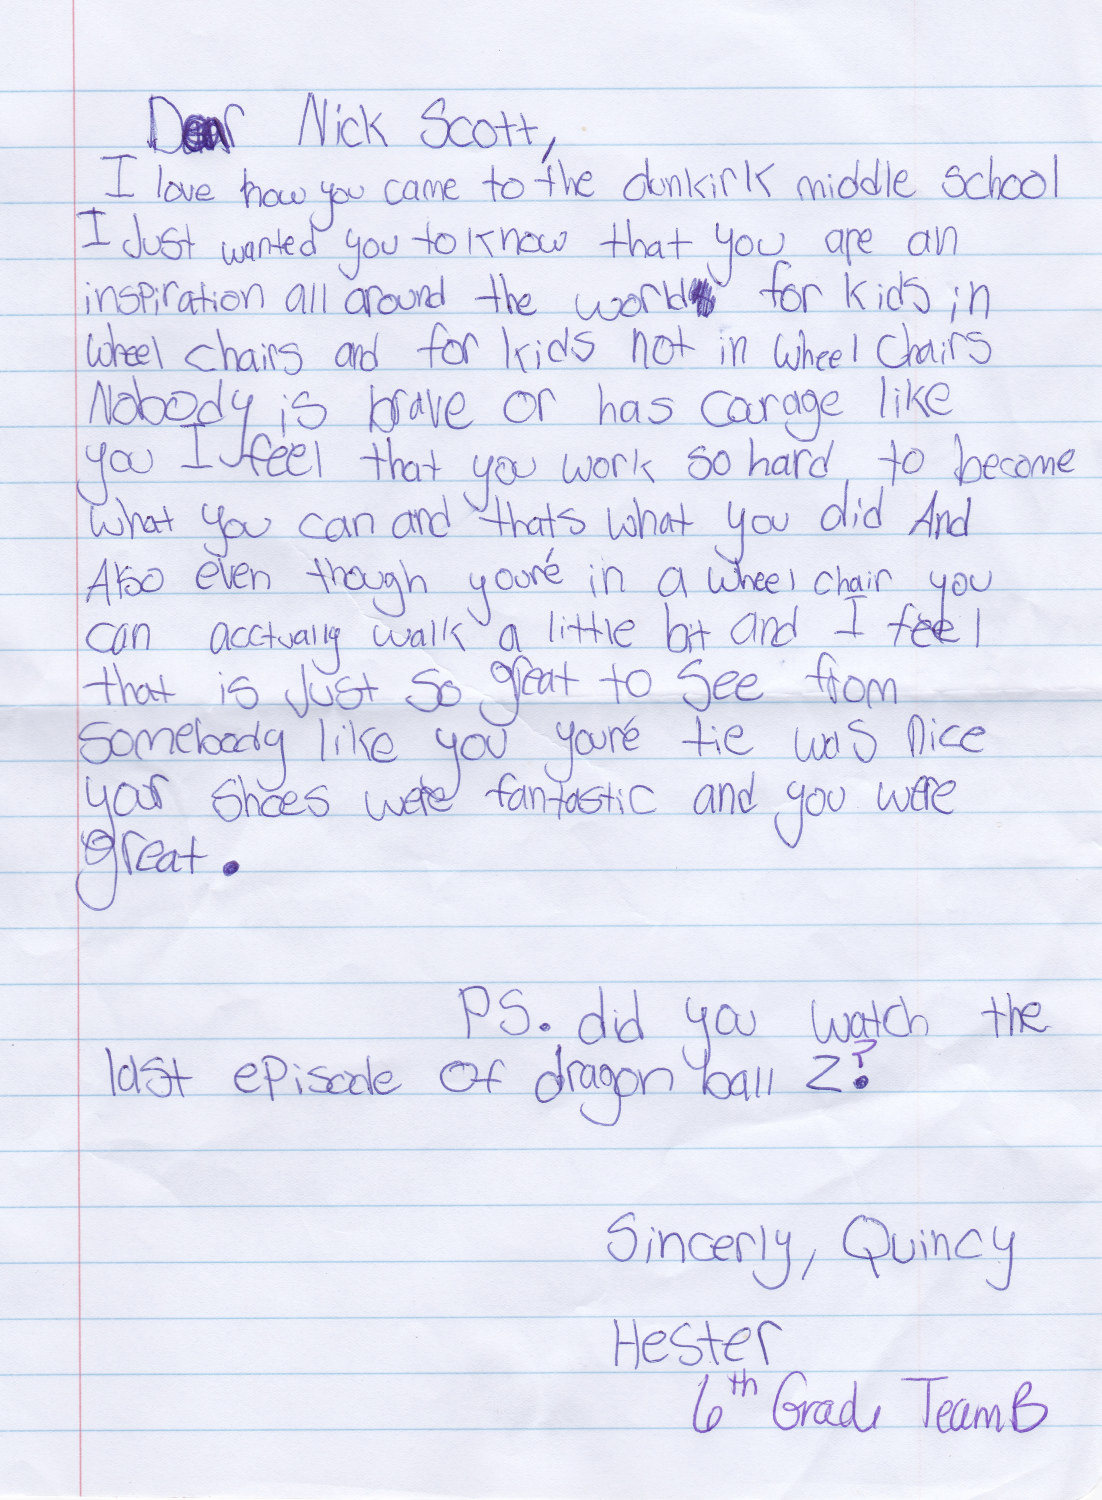 Dear Nick Scott,
I love how you came to the dunkirk middle school
I Just wanted you to know that you are an
inspiration all around the world for kids in
wheel chairs and for kids not in wheel chairs
Nobody is brave or has carage like
you I feel that you work so hard to become
what you can and thats what you did And
Also even though youre' in a wheel chair you
can acctually walk a little bit and I feel
that is Just so great to see from
somebody like you youre' tie was nice
your shoes were fantastic and you were
great.
PS. did you watch the
last episode of dragon ball Z?
Sincerly, Quincy
Hester
6th Grade Team B